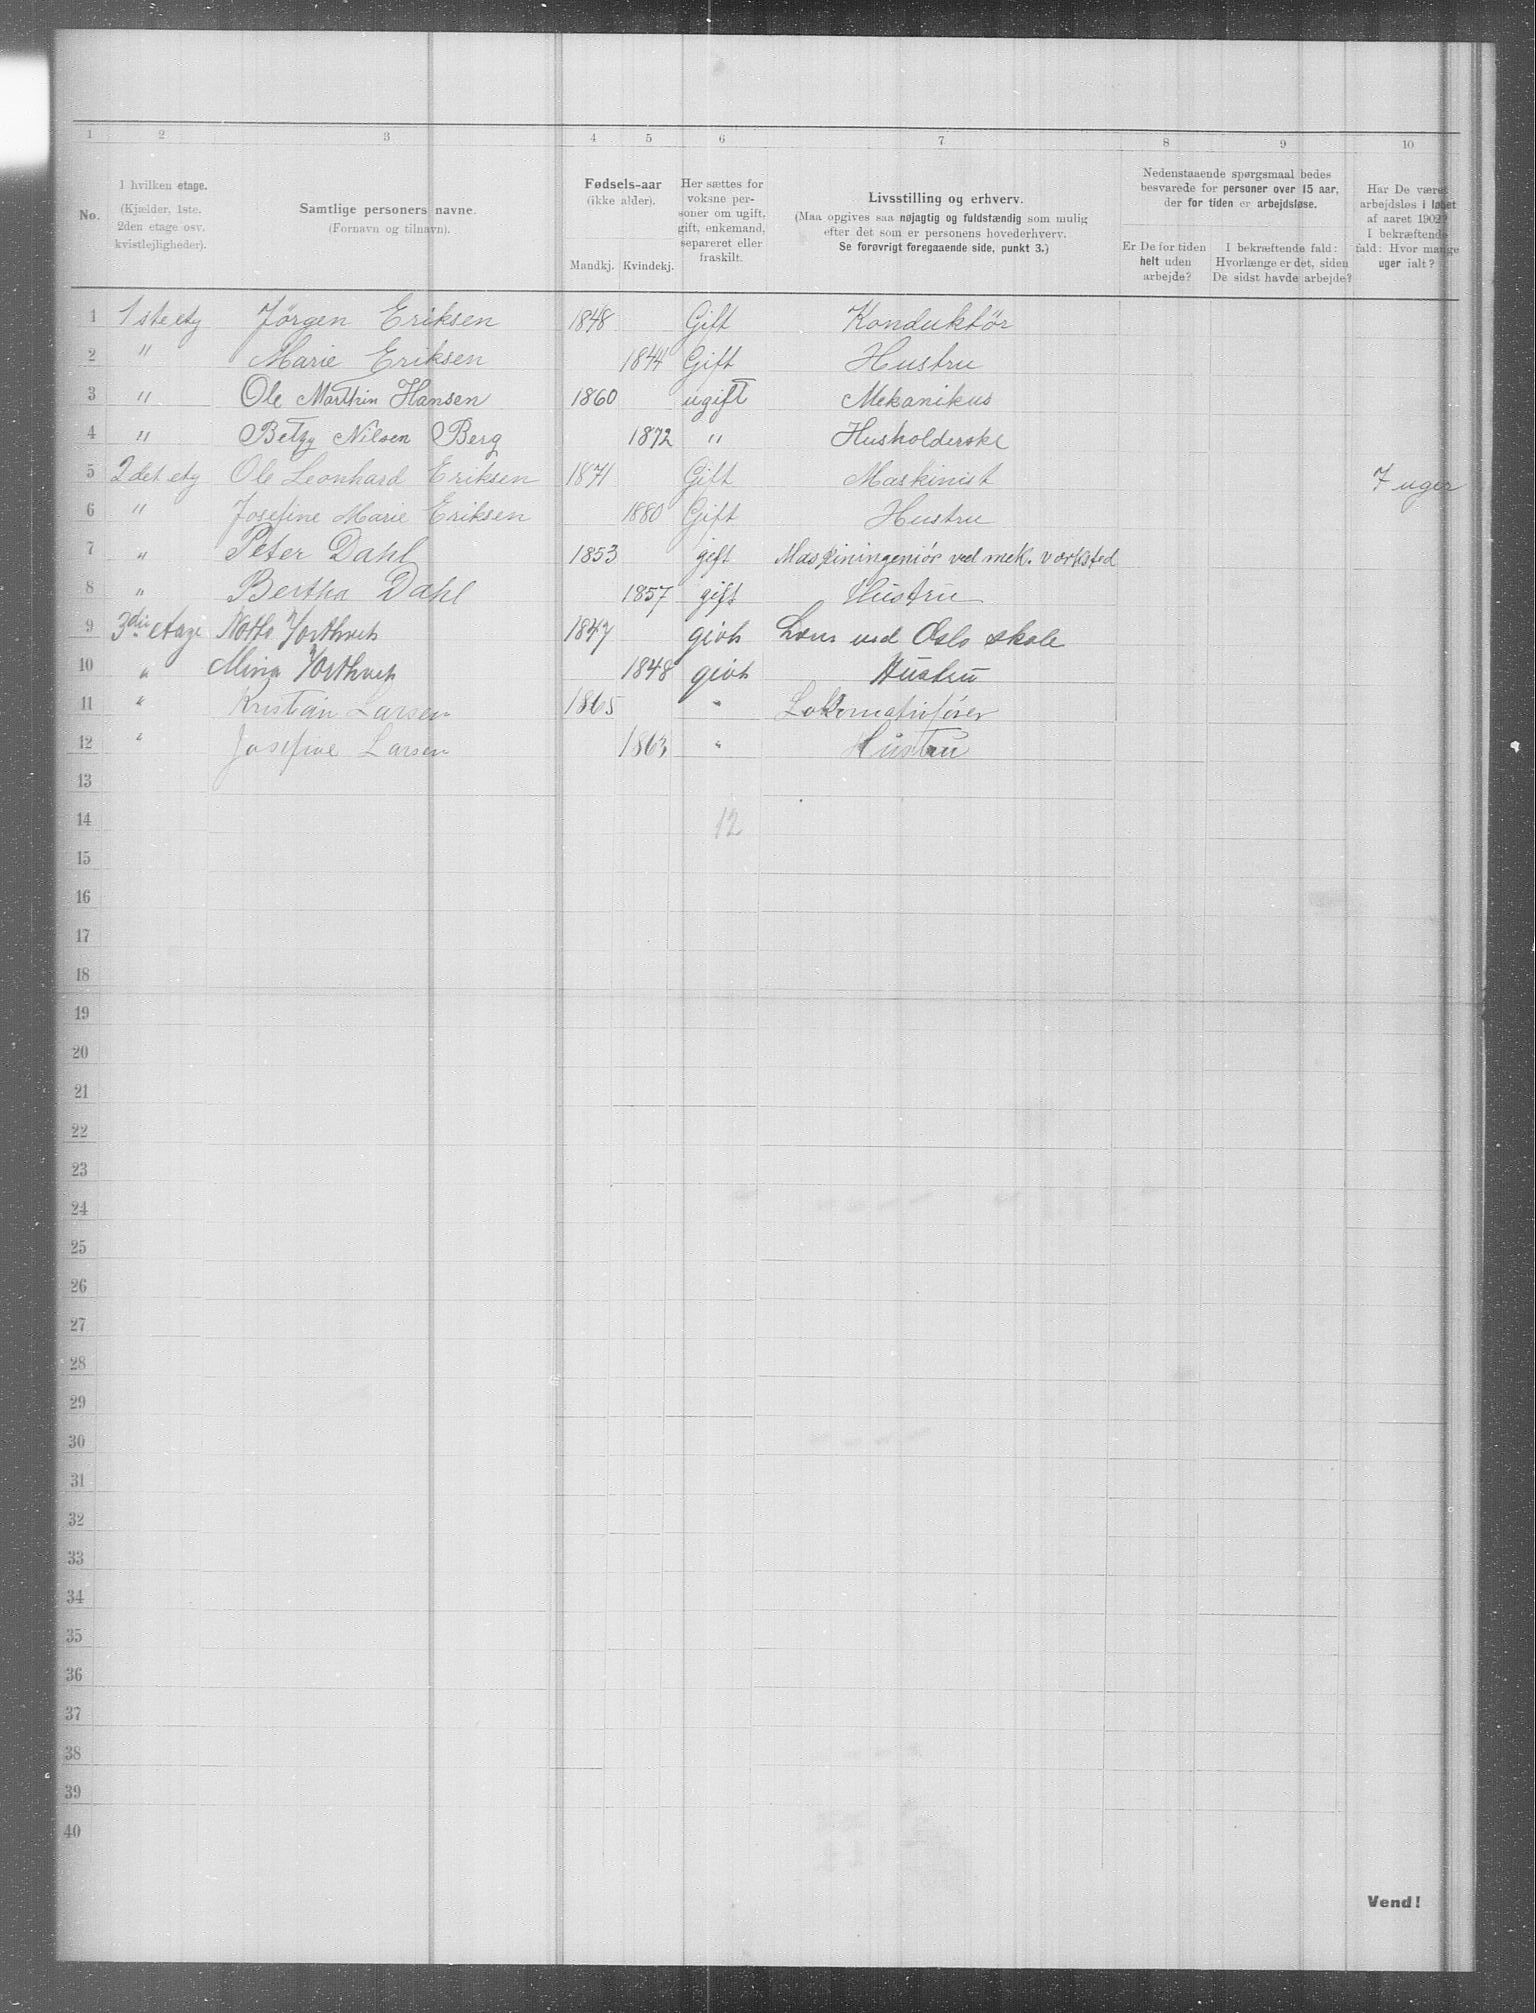 1 2 3 4 5 6 7 8 9 10
No.
I hvilken etage. (Kjælder, 1ste. 2den etage osv. kvistlejligheder).
Samtlige personers navne. (Fornavn og tilnavn).
Fødsels-aar (ikke alder). Mandkj. Kvindekj.
Her sættes for voksne per- soner om ugift, gift, enkemand, separeret eller fraskilt.
Livsstilling og erhverv. (Maa opgives saa nøjagtig og fuldstændig som mulig efter det som er personens hovederhverv. Se forøvrigt foregaaende side, punkt 3.)
Nedenstaaende spørgsmaal bedes besvarede for personer over 15 aar, der for tiden er arbejdsløse.
Er De for tiden helt uden arbejde?
I bekræftende fald: Hvorlænge er det, siden De sidst havde arbejde?
Har De været arbejdsløs i løbet af aaret 1902? I bekræftende fald: Hvor mange uger ialt?
1 1ste etg Jørgen Eriksen 1848 Gift Konduktør
2 " Marie Eriksen 1844 Gift Hustru
3 " Ole Marthin Hansen 1860 ugift Mekanikus
4 " Betzy Nilsen Berg 1872 " Husholderske
5 2det etg Ole Leonhard Eriksen 1871 Gift Maskinist 7 uger
6 " Josefine Marie Eriksen 1880 Gift Hustru
7 " Peter Dahl 1853 gift Maskiningeniør ved mek. værksted
8 " Bertha Dahl 1857 gift Hustru
9 3die Etage 1847 givt ved Oslo skole
10 " 1848 givt Hustru
11 " Kristian Larsen 1865 " Lokomotivfører
12 " Josefine Larsen 1863 " Hustru
13
14 12
15
16
17
18
19
20
21
22
23
24
25
26
27
28
29
30
31
32
33
34
35
36
37
38
39
40
Vend!